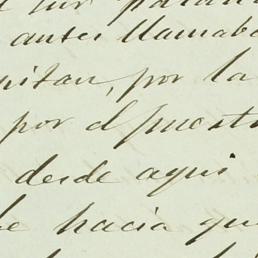 sur
antes llamaba
pitan, por la
por el puesto
desde aqui
hacia que